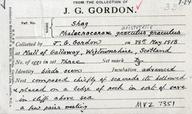 FROM THE COLLECTION OF
J. G. GORDON.
Shag
aristotelis
Phalacrocorax graculus graculus
Collected by J. G. Gordon on 14th May 1913
at Mull of Galloway, Wigtownshire, Scotland
No. of eggs in set Three Set mark
Identity birds seen Incubation, advanced
Nest composed chiefly of seaweeds etc. bellowed &
placed on a ledge of rock in sort of cave
in cliff above sea
a few pairs nesting MVZ 7351